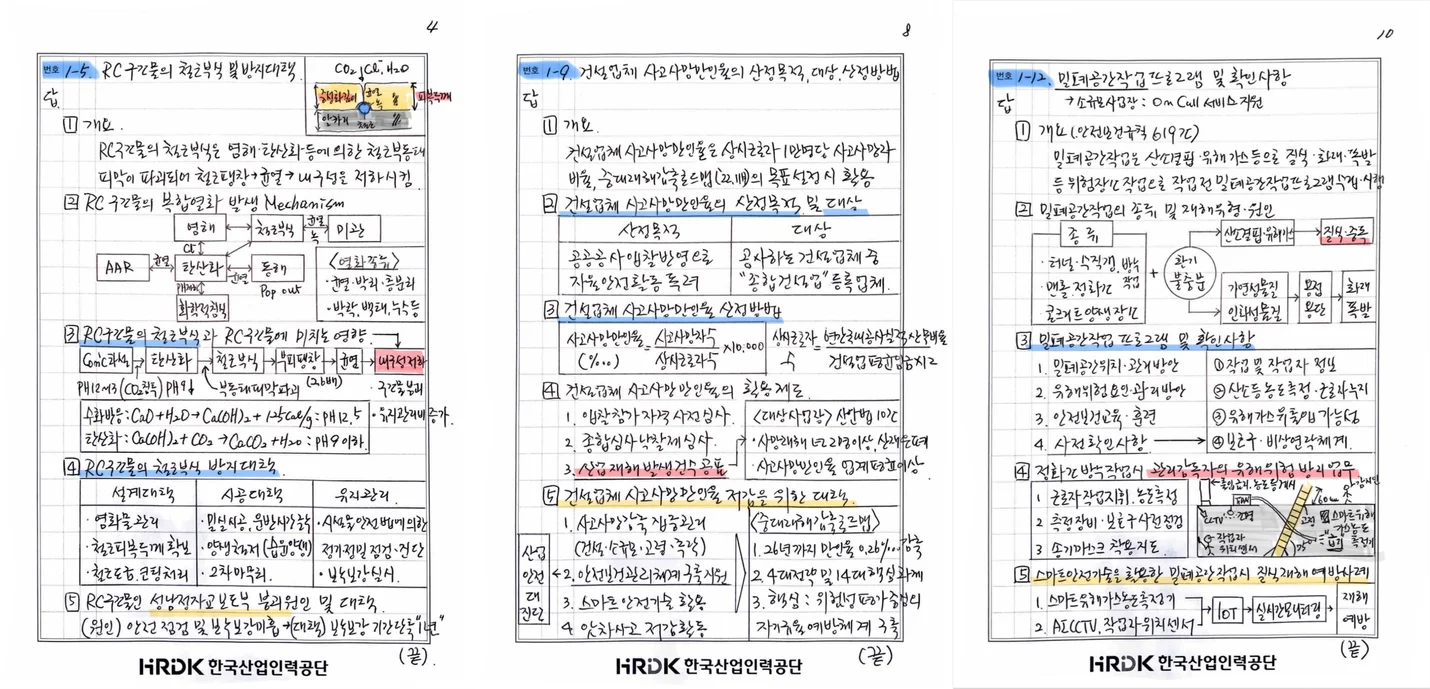 4
번호 1-5. RC구건물의 철근부식 및 방지대책.
CO₂, Cl⁻, H₂O
답
중성화깊이 균열
알카리
피복두께
1 개요.
RC구건물의 철근부식은 염해·탄산화·등에 의한 철근부동태
피막이 파괴되어 철근팽창→균열→내구성을 저하시킴.
2 RC구건물의 복합열화 발생 Mechanism
염해 철근부식 균열 녹 미관
Cl↓
AAR 균열 탄산화 균열 동해
Pop out
화학적침식
<열화종류>
·균열·박리·층분리
·박락, 백태, 누수등
3 RC구건물의 철근부식과 RC구건물에 미치는 영향
Conc타설 → 탄산화 → 철근부식 → 부피팽창 → 균열 → 내구성저하
PH12~13 (CO₂침투) PH9↓ 부동태피막파괴 (2.6배) ·구건물붕괴
수화반응: CaO+H₂O → Ca(OH)₂ + 125cal/g : PH12.5
·유지관리비 증가.
탄산화: Ca(OH)₂ + CO₂ → CaCO₂ + H₂O : PH9이하.
4 RC구건물의 철근부식 방지대책
설계대책 시공대책 유지관리.
·염화물관리 ·밀실시공, 운반시간준수 ·시설물안전법에 의한
·철근피복두께 확보 ·양생철저 (습윤양생) 정기정밀점검·진단
·철근도금, 코팅처리 ·2차마무리. ·보수보강실시.
5 RC구건물인 성남정자교 보도부 붕괴원인 및 대책.
(원인) 안전점검 및 보수보강미흡→(대책) 보수보강 기간단축 "1년"
(끝)
HRDK 한국산업인력공단
8
번호 1-9. 건설업체 사고사망만인율의 산정목적, 대상, 산정방법
답
1 개요
건설업체 사고사망만인율은 상시근로자 1만명당 사고사망자
비율, 중대재해감축로드맵(22.11월)의 목표설정시 활용
2 건설업체 사고사망만인율의 산정목적 및 대상
산정목적 대상
공공공사입찰반영으로 공사하는 건설업체 중
자율안전활동 독려 "종합건설업" 등록업체.
3 건설업체 사고사망만인율 산정방법
사고사망만인율 (‱) = 사고사망자수 / 상시근로자수 ×10,000
상시근로자수 = 연간국내공사실적×노무비율 / 건설업월평균임금×12
4 건설업체 사고사망만인율의 활용제도
1. 입찰참가자격사전심사. <대상사업장> 산안법10조
2. 종합심사낙찰제심사. ·사망재해 년2명이상, 산재은폐
3. 산업재해발생건수공표 ·사고사망만인율 업계평균이상.
5 건설업체 사고사망만인율 저감을 위한 대책.
산업안전대진단
1. 사고사망감축 집중관리 <중대재해감축로드맵>
(건설·소규모·고령·추락) 1. 26년까지 만인율 0.26‱감축
2. 안전보건관리체계 구축지원 2. 4대전략 및 14대핵심과제
3. 스마트 안전기술 활용 3. 핵심: 위험성평가중심의
4. 앗차사고 저감활동 자기규율예방체계 구축
(끝)
HRDK 한국산업인력공단
10
번호 1-12. 밀폐공간작업프로그램 및 확인사항
답 →소규모사업장: On Call 서비스지원
1 개요(안전보건규칙 619조)
밀폐공간작업은 산소결핍·유해가스등으로 질식·화재·폭발
등 위험장소작업으로 작업전 밀폐공간작업프로그램수립·시행
2 밀폐공간작업의 종류 및 재해유형·원인
종류
·터널·수직갱, 방수작업
·맨홀, 정화조
·콘크리트양생장소
+ 환기불충분
산소결핍·유해가스 → 질식·중독
가연성물질 인화성물질 용접 용단 화재 폭발
3 밀폐공간작업프로그램 및 확인사항
1. 밀폐공간위치·관리방안 ①작업 및 작업자 정보
2. 유해위험요인·관리방안 ②산소등농도측정·근로자누지
3. 안전보건교육·훈련 ③유해가스유출입 가능성
4. 사전확인사항 → ④보호구·비상연락체계.
4 정화조방수작업시 관리감독자의 유해위험방지업무
1. 근로자작업지휘, 농도측정
2. 측정장비·보호구사전점검
3. 송기마스크 착용지도.
FAN
CCTV
조명
작업자 위치센서
감시인
60cm
고정
75°
환기
스마트유해가스농도측정기
5 스마트안전기술을활용한 밀폐공간작업시 질식재해예방사례
1. 스마트유해가스농도측정기
2. AI CCTV, 작업자위치센서
→ IoT → 실시간모니터링 → 재해예방
(끝)
HRDK 한국산업인력공단